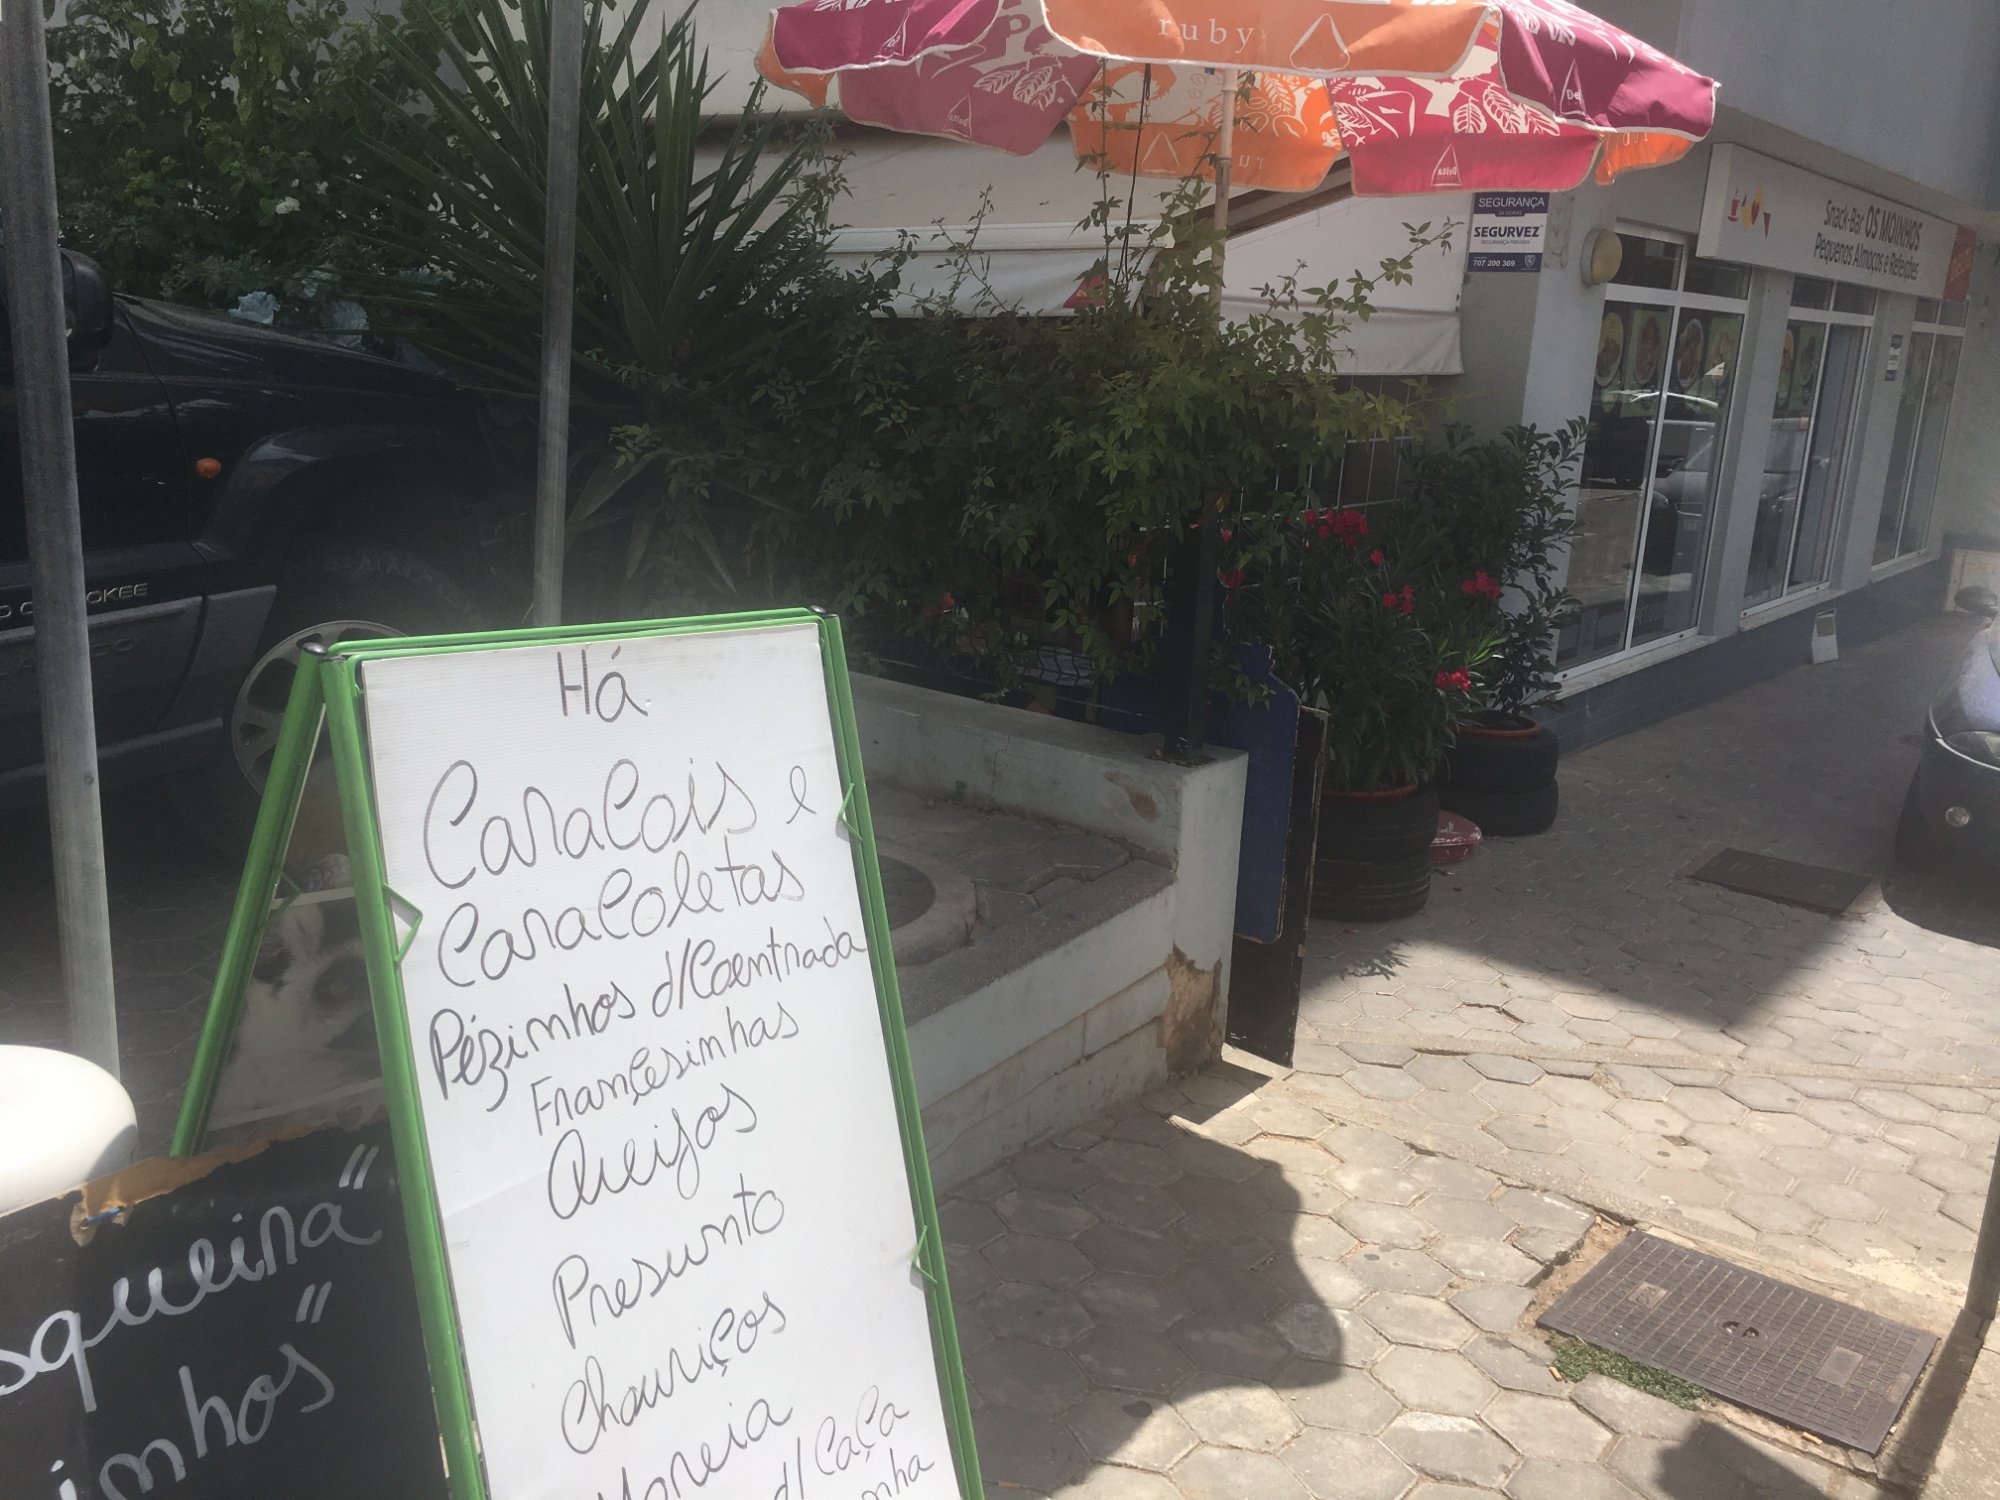 ruby
Delta
SEGURANÇA
24 HORAS
SEGURVEZ
SEGURANÇA PRIVADA
707 200 369
Snack-Bar OS MOINHOS
Pequenos Almoços e Refeições
CHEROKEE
Há
Caracois e
Caracoletas
Pézinhos d/Coentrada
Françesinhas
Queijos
Presunto
Chouriços
Moreia
d/Caça
squeina"
inhos"